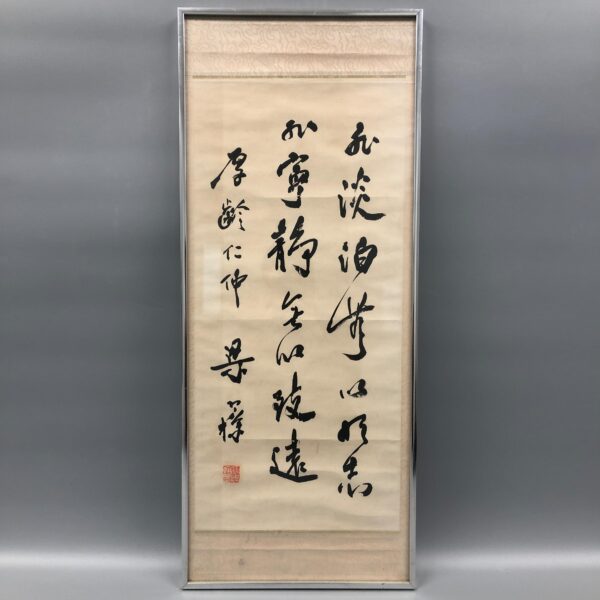 非淡泊無以明志
非寧靜無以致遠
厚齡仁仲 梁